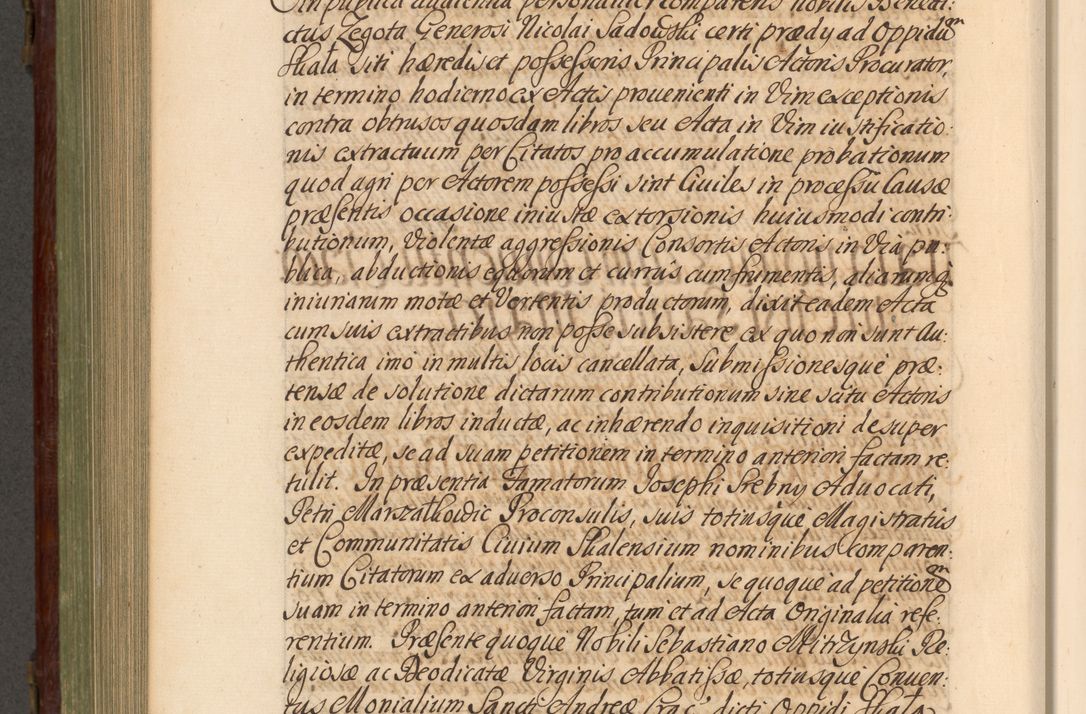 in publica audientia personaliter comparens nobilis Benedi:
ctus Zegota Generosi Nicolai Sadowski certi prædy ad Oppidũ
Skała siti hæredis et possessoris Principalis Actoris Procurator,
in termino hodierno ex Actis prouenienti in Vim exceptionis
contra obtrusos quosdam libros seu Acta in Vim iustificatio:
nis extractuum per Citatos pro accumulatione probationum
quod agri per Actorem possessi sint Ciuiles in processu Causæ
præsentis occasione iniustæ extorsionis huiusmodi contri:
butionum, Violentæ aggressionis Consortis Actoris in Via pu:
blica, abductionis equorum et currus cum frumentis, aliarumq
iniuriarum motæ et Vertentis productorum, dixit eadem Acta
cum suis extractibus non posse subsistere ex quo non sunt Au:
thentica imo in multis locis cancellata, Submissionesque præ:
tensæ de solutione dictarum contributionum sine scitu Actoris
in eosdem libros inductæ, ac inhærendo inquisitioni desuper
expeditæ, se ad suam petitionem in termino anteriori factam re:
tulit. In præsentia Famatorum Josephi Srebny Aduocati,
Petri Marszałkowic Proconsulis, suis totiusque Magistratus
et Communitatis Ciuium Skalensium nominibus comparen:
tium Citatorum ex aduerso Principalium, se quoque ad petitionẽ
suam in termino anteriori factam, tum et ad Acta Originalia refe:
rentium. Præsente quoque Nobili Sebastiano Mitrzynski Re:
ligiosæ ac Deodicatæ Virginis Abbatissæ, totiusque Conuen:
tus Monialium Sancti Andreæ Crac: dicti Oppidi Skała